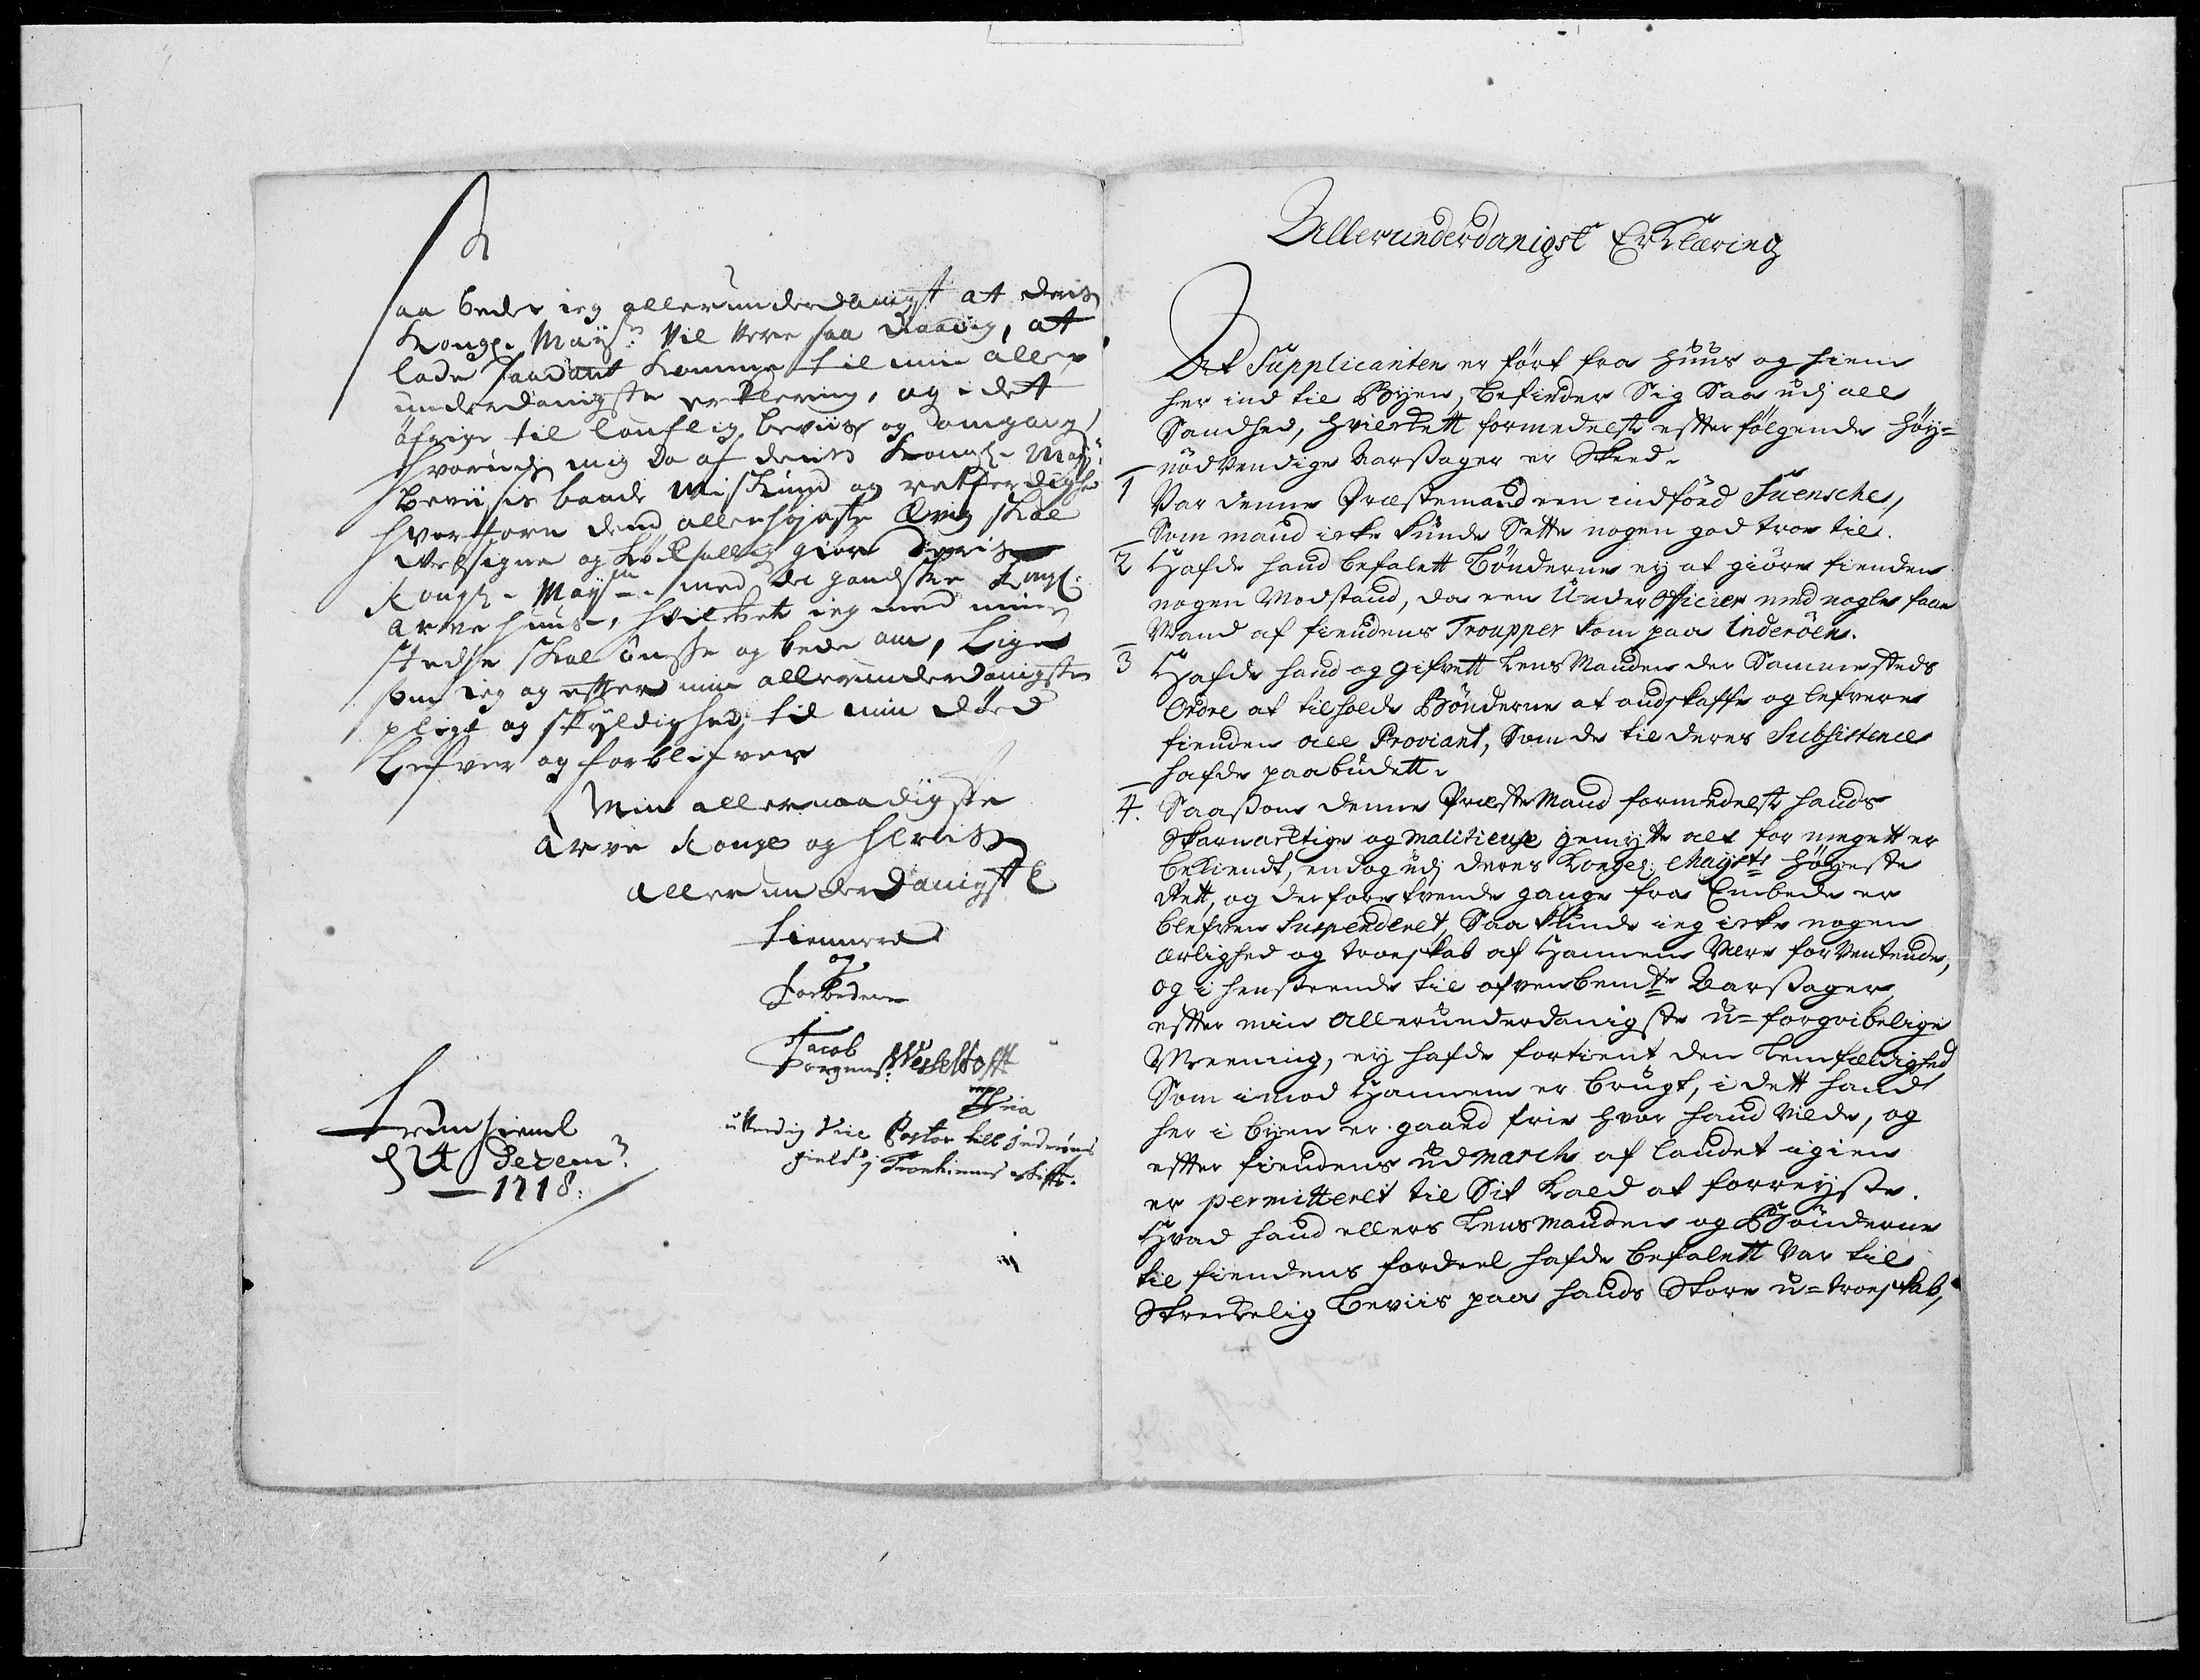 Saa beder ieg allerunderdanigst at deris
Kongl. Mayst: vil vere saa naadig, at
lade saadant komme til min aller
underdanigste erklering, og i det
öfrige til louflig beviis og omgang,
hvorudj mig da af deris Kongl. Mayt:
beviisis baade Miskund og retferdighed
hvorfore dend allerhöjeste Ævig skal
velsigne og löcksallig giøre Deris
Kongl. Mayst. med de gandske Kongl:
arve huus, hvilket ieg med mine
stedse skal ønsse og bede om, lige
som ieg og effter min allerunderdanigste
pligt og skyldighed, til min död
lefver og forblifver
Min allernaadigste
Arve Konges og Herris
allerunderdanigste
tiennere
og
forbedere
Jacob
Jörgens: Wesseltofft
mpria
uverdig vice Pastor till Inderöens
gield i Trondhiems stifft.
Trundhiemb
d 24 Decem:
1718:
Allerunderdanigst Erklæring
At Supplicanten er fört fra huus og hiem
her ind til Byen, befinder Sig Saa udj all
Sandhed, hvilcket formedelst effterfölgende höy=
nödvendige Aarsager er Skeed.
1 Var denne Præstemand een indföed Suensche,
Som mand icke kunde Sette nogen god troe til.
2 Hafde hand befalett Bönderne ey at giöre fienden
nogen Modstand, da een Under Officier med nogle faae
Mand af fiendens Troupper kom paa Inderöen.
3 Hafde hand og gifvett LensManden der Sammesteds
Ordre at tilholde Bönderne at andskaffe og lefvere
fienden all Proviant, Som de til deres Subsistence
hafde paabudett.
4. Saasom denne PræsteMand formedelst hands
Skarnactige og malitieuse gemytte alt for megett er
bekiendt, endog udj deres Kongel: Mayts höyeste
Rett, og derfore tvende gange fra Embede er
blefven Suspenderet, Saa kunde ieg icke nogen
ærlighed og troeskab af Hannem Være forventende,
og i henseende til ofvenbemte Aarsager
effter min Allerunderdanigste u=forgribelige
Meening, ey hafde fortient den lemfældighed
Som imod Hannem er brugt, i dett hand
her i byen er gaaed frie hvor hand vilde, og
effter fiendens udmarch af landet igien
er permitteret til Sit Kald at forreyse.
Hvad hand ellers Lensmanden og Bönderne
til fiendens fordeel hafde befalett var til
Skreckelig beviis paa hands Store u=troeskab,